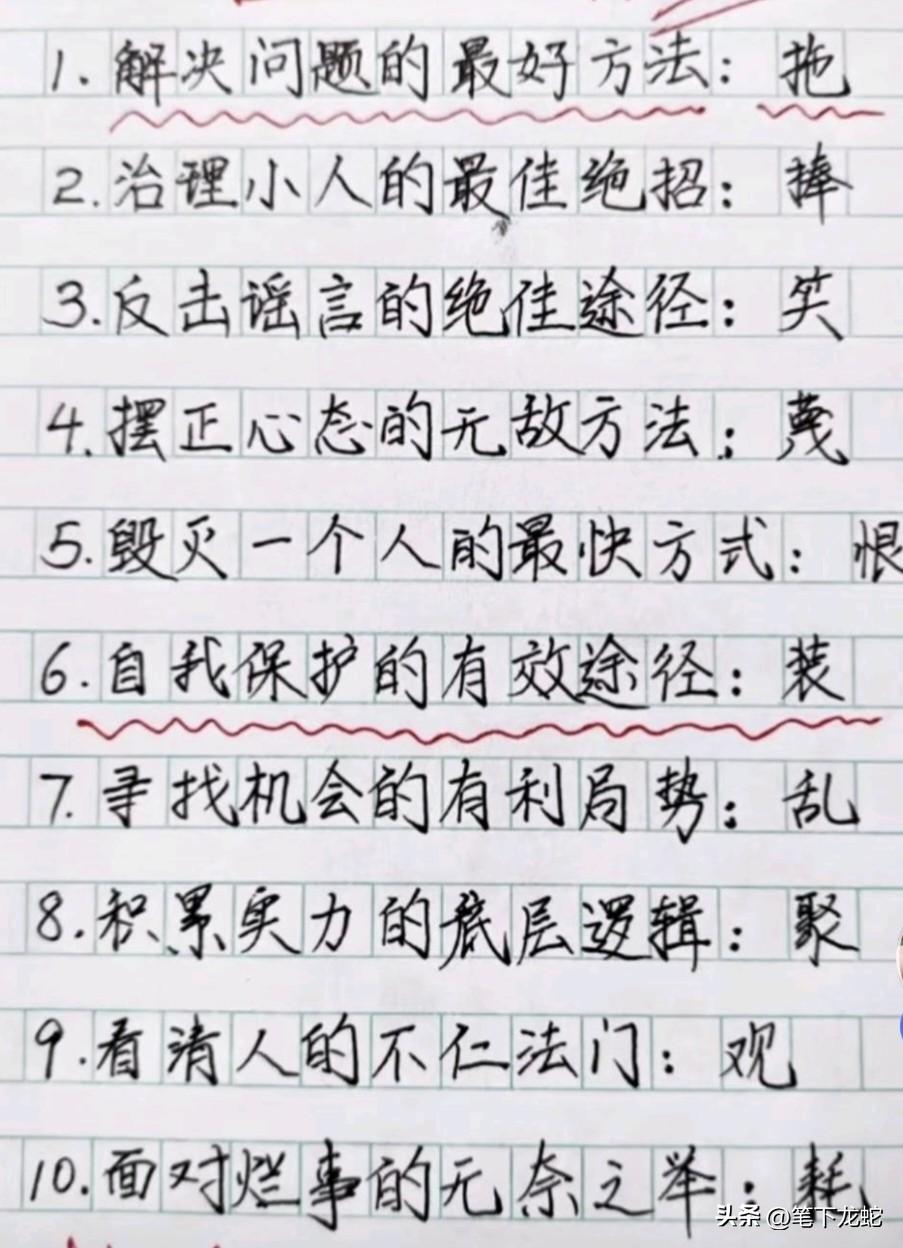 1. 解决问题的最好方法：拖
2. 治理小人的最佳绝招：捧
3. 反击谣言的绝佳途径：笑
4. 摆正心态的无敌方法：蔑
5. 毁灭一个人的最快方式：恨
6. 自我保护的有效途径：装
7. 寻找机会的有利局势：乱
8. 积累实力的底层逻辑：聚
9. 看清人的不仁法门：观
10. 面对烂事的无奈之举：耗
头条 @笔下龙蛇